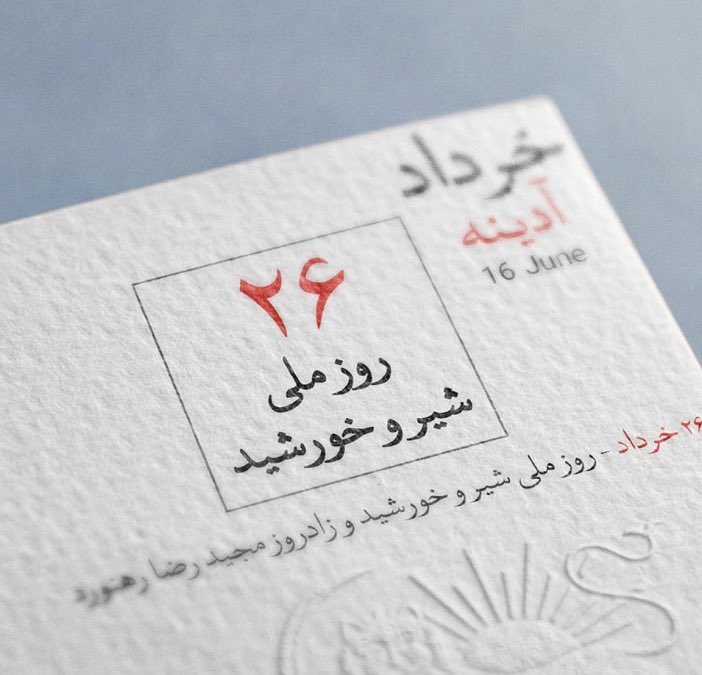 خرداد
آدینه
16 June
۲۶
روز ملی
شیر و خورشید
۲۶ خرداد - روز ملی شیر و خورشید و زادروز مجید رضا رهنورد